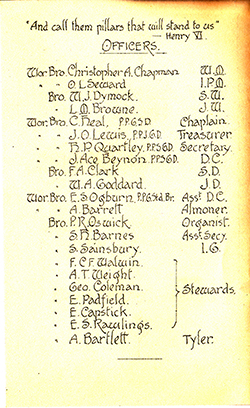 "And call them pillars that will stand to us"
Henry VI.
OFFICERS.
Wor. Bro. Christopher A. Chapman W.M.
" " O. L. Seward I.P.M.
Bro. W. J. Dymock. S.W.
" L. M. Browne. J.W.
Wor. Bro. C. Neal, P.P.G.D. Chaplain.
" " J. O. Lewis, P.P.J.G.D. Treasurer.
" " H. P. Quartley, P.P.S.G.D. Secretary.
" " J. Ace Beynon, P.P.S.G.D. D.C.
Bro. F. A. Clark S.D.
" W. A. Goddard. J.D.
Wor. Bro. E. S. Ogburn, P.P.G.Std.Br. Asst. D.C.
" " A. Barrett Almoner.
Bro. P. R. Oswick. Organist.
" S. H. Barnes Asst. Secy.
" S. Sainsbury. I.G.
" F. C. F. Walwin.
" A. T. Weight.
" Geo. Coleman.
" E. Padfield.
" E. Capstick.
" E. S. Rawlings.
Stewards.
" A. Bartlett. Tyler.